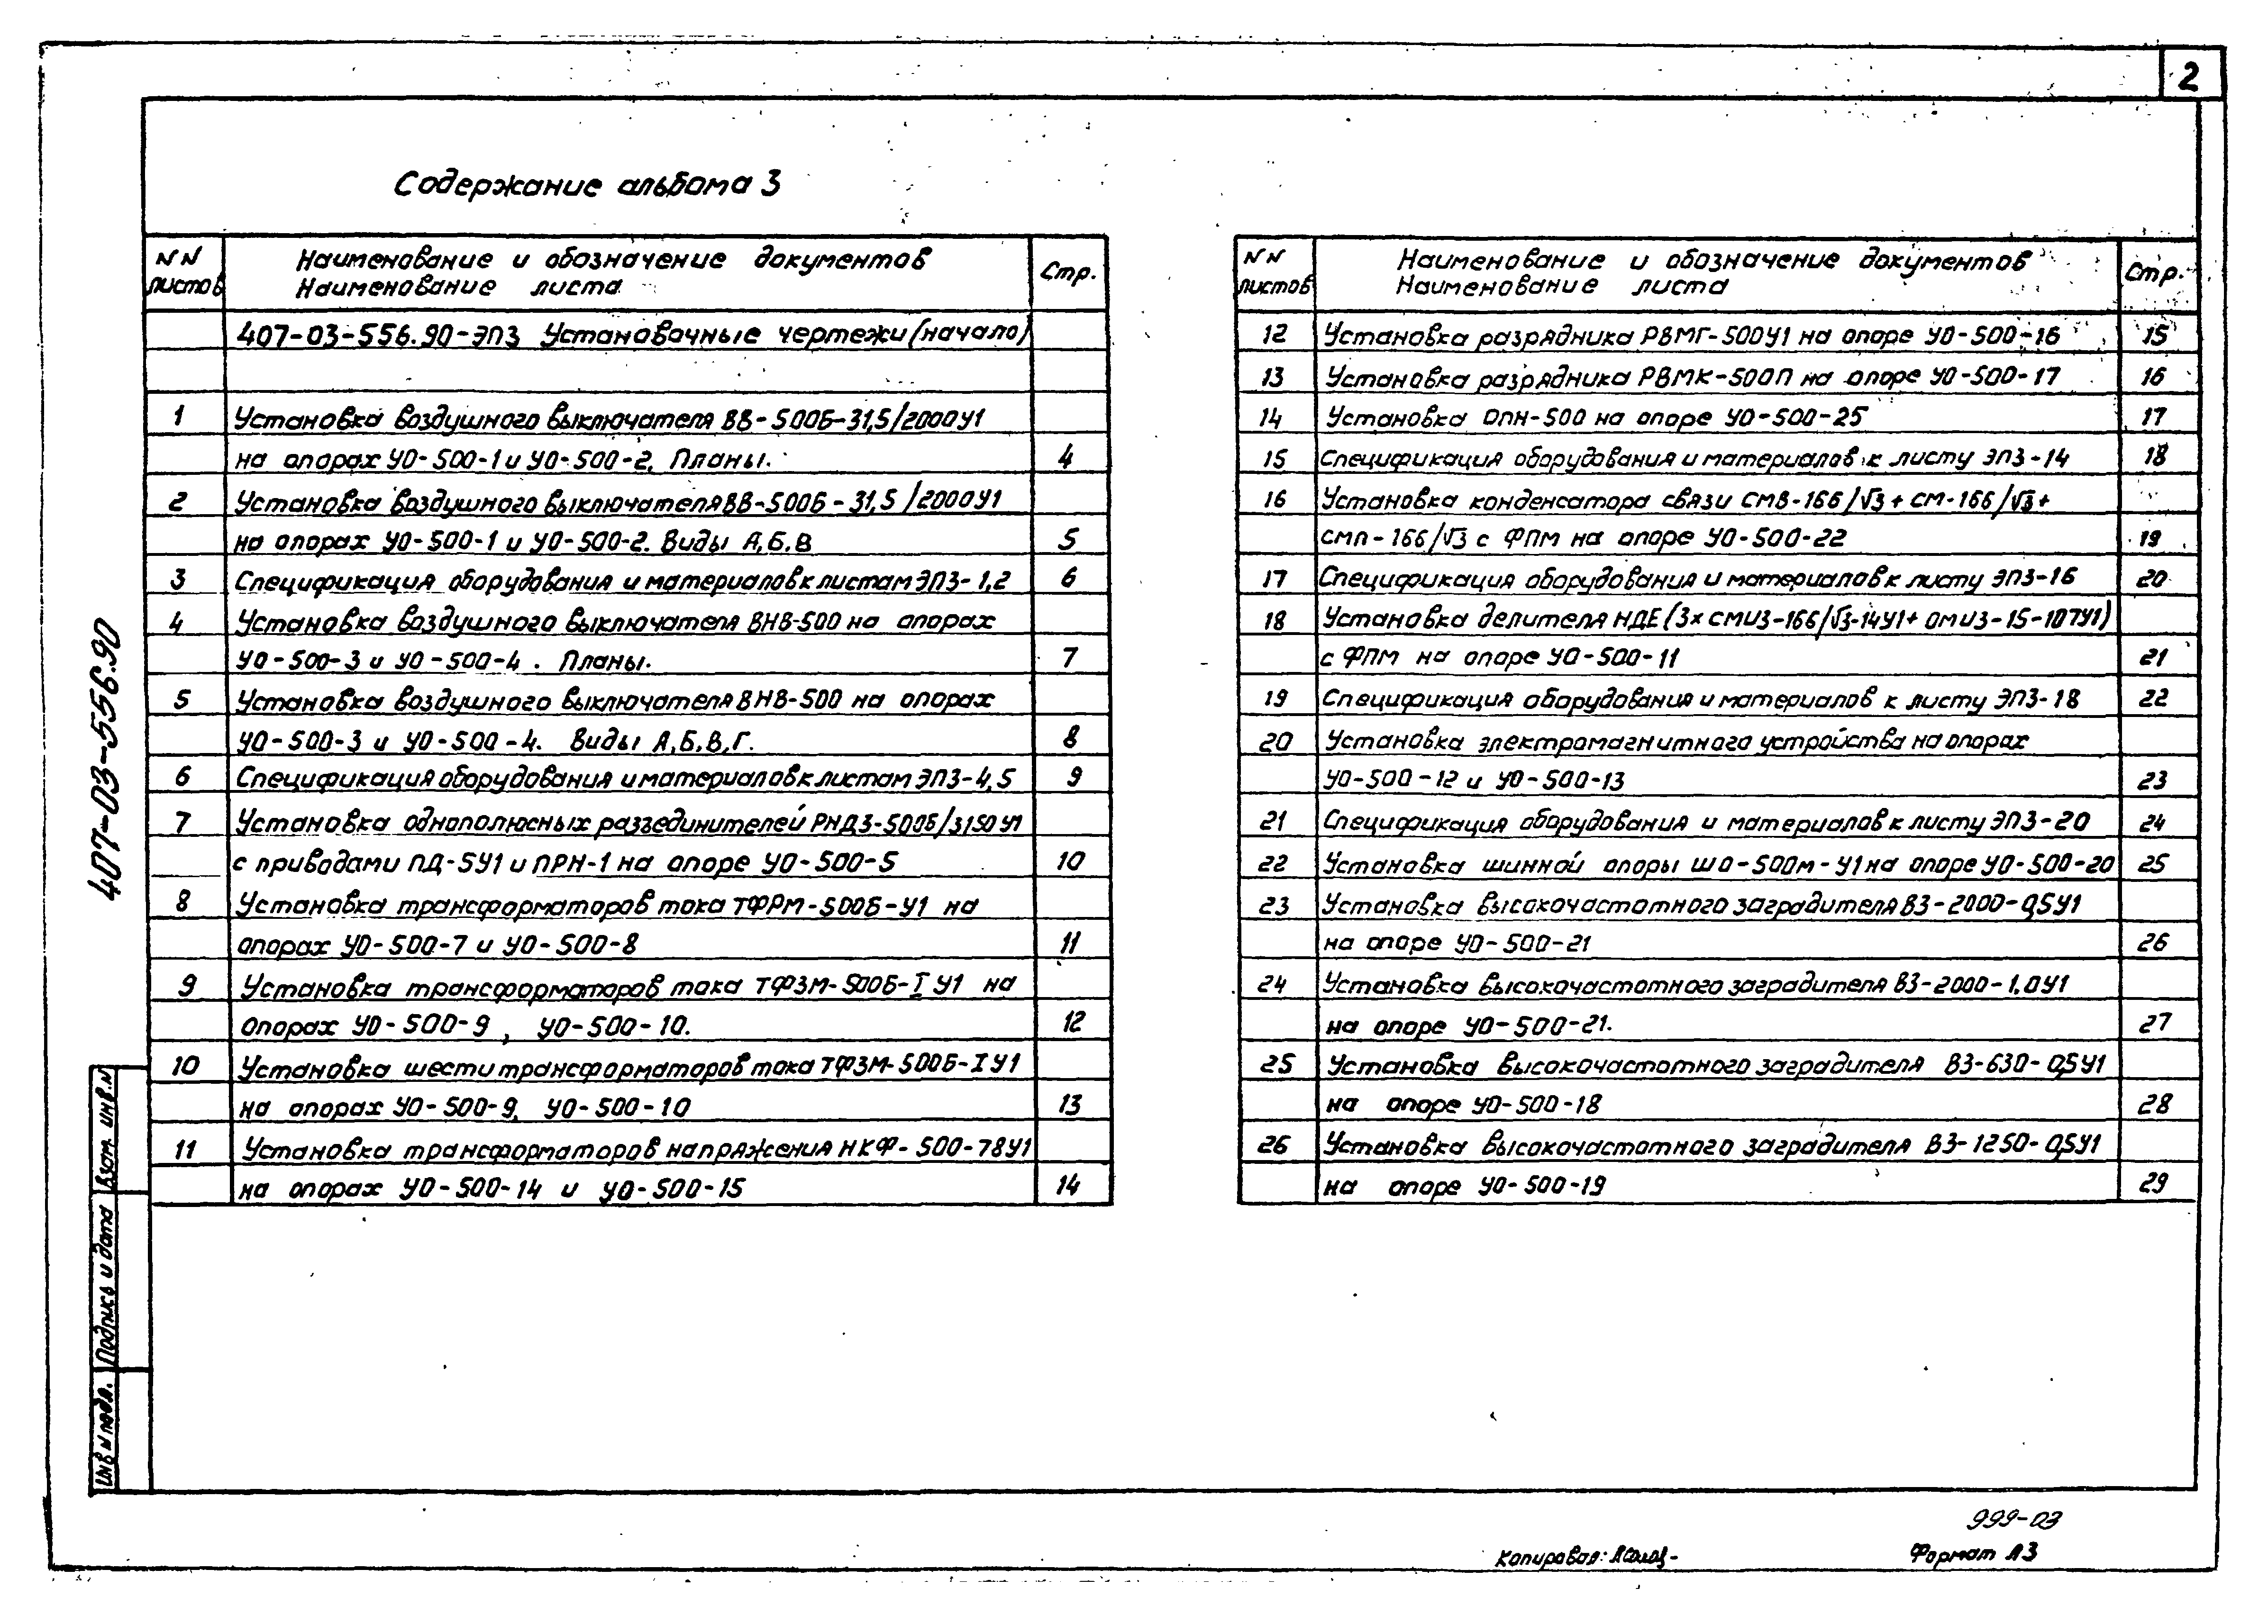 2
Содержание альбома 3
NN листов
Наименование и обозначение документов
Наименование листа
Стр.
407-03-556.90-ЭП3 Установочные чертежи (начало)
1 Установка воздушного выключателя ВВ-500Б-31,5/2000У1
на опорах УО-500-1 и УО-500-2. Планы. 4
2 Установка воздушного выключателя ВВ-500Б-31,5/2000У1
на опорах УО-500-1 и УО-500-2. Виды А,Б,В 5
3 Спецификация оборудования и материалов к листам ЭП3-1,2 6
4 Установка воздушного выключателя ВНВ-500 на опорах
УО-500-3 и УО-500-4. Планы. 7
5 Установка воздушного выключателя ВНВ-500 на опорах
УО-500-3 и УО-500-4. Виды А,Б,В,Г. 8
6 Спецификация оборудования и материалов к листам ЭП3-4,5 9
7 Установка однополюсных разъединителей РНДЗ-500Б/3150У1
с приводами ПД-5У1 и ПРН-1 на опоре УО-500-5 10
8 Установка трансформаторов тока ТФРМ-500Б-У1 на
опорах УО-500-7 и УО-500-8 11
9 Установка трансформаторов тока ТФЗМ-500Б-I У1 на
опорах УО-500-9, УО-500-10. 12
10 Установка шести трансформаторов тока ТФЗМ-500Б-I У1
на опорах УО-500-9, УО-500-10 13
11 Установка трансформаторов напряжения НКФ-500-78У1
на опорах УО-500-14 и УО-500-15 14
NN листов
Наименование и обозначение документов
Наименование листа
Стр.
12 Установка разрядника РВМГ-500У1 на опоре УО-500-16 15
13 Установка разрядника РВМК-500П на опоре УО-500-17 16
14 Установка ОПН-500 на опоре УО-500-25 17
15 Спецификация оборудования и материалов к листу ЭП3-14 18
16 Установка конденсатора связи СМВ-166/√3+СМ-166/√3+
СМП-166/√3 с ФПМ на опоре УО-500-22 19
17 Спецификация оборудования и материалов к листу ЭП3-16 20
18 Установка делителя НДЕ (3х СМИЗ-166/√3-14У1+ОМИЗ-15-107У1)
с ФПМ на опоре УО-500-11 21
19 Спецификация оборудования и материалов к листу ЭП3-18 22
20 Установка электромагнитного устройства на опорах
УО-500-12 и УО-500-13 23
21 Спецификация оборудования и материалов к листу ЭП3-20 24
22 Установка шинной опоры ШО-500М-У1 на опоре УО-500-20 25
23 Установка высокочастотного заградителя ВЗ-2000-0,5У1
на опоре УО-500-21 26
24 Установка высокочастотного заградителя ВЗ-2000-1,0У1
на опоре УО-500-21. 27
25 Установка высокочастотного заградителя ВЗ-630-0,5У1
на опоре УО-500-18 28
26 Установка высокочастотного заградителя ВЗ-1250-0,5У1
на опоре УО-500-19 29
407-03-556.90
Взам. инв.N
Подпись и дата
Инв N подл.
999-03
Копировал:
Формат А3